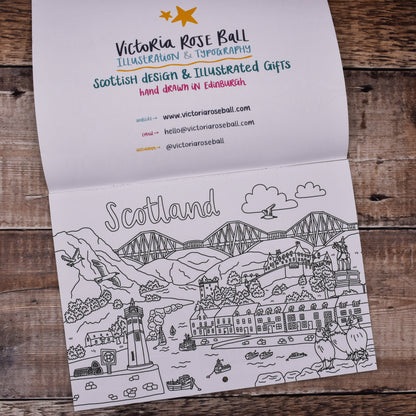 Victoria Rose Ball
Illustration & Typography
Scottish Design & Illustrated Gifts
hand drawn in Edinburgh
www.victoriaroseball.com
hello@victoriaroseball.com
@victoriaroseball
Scotland